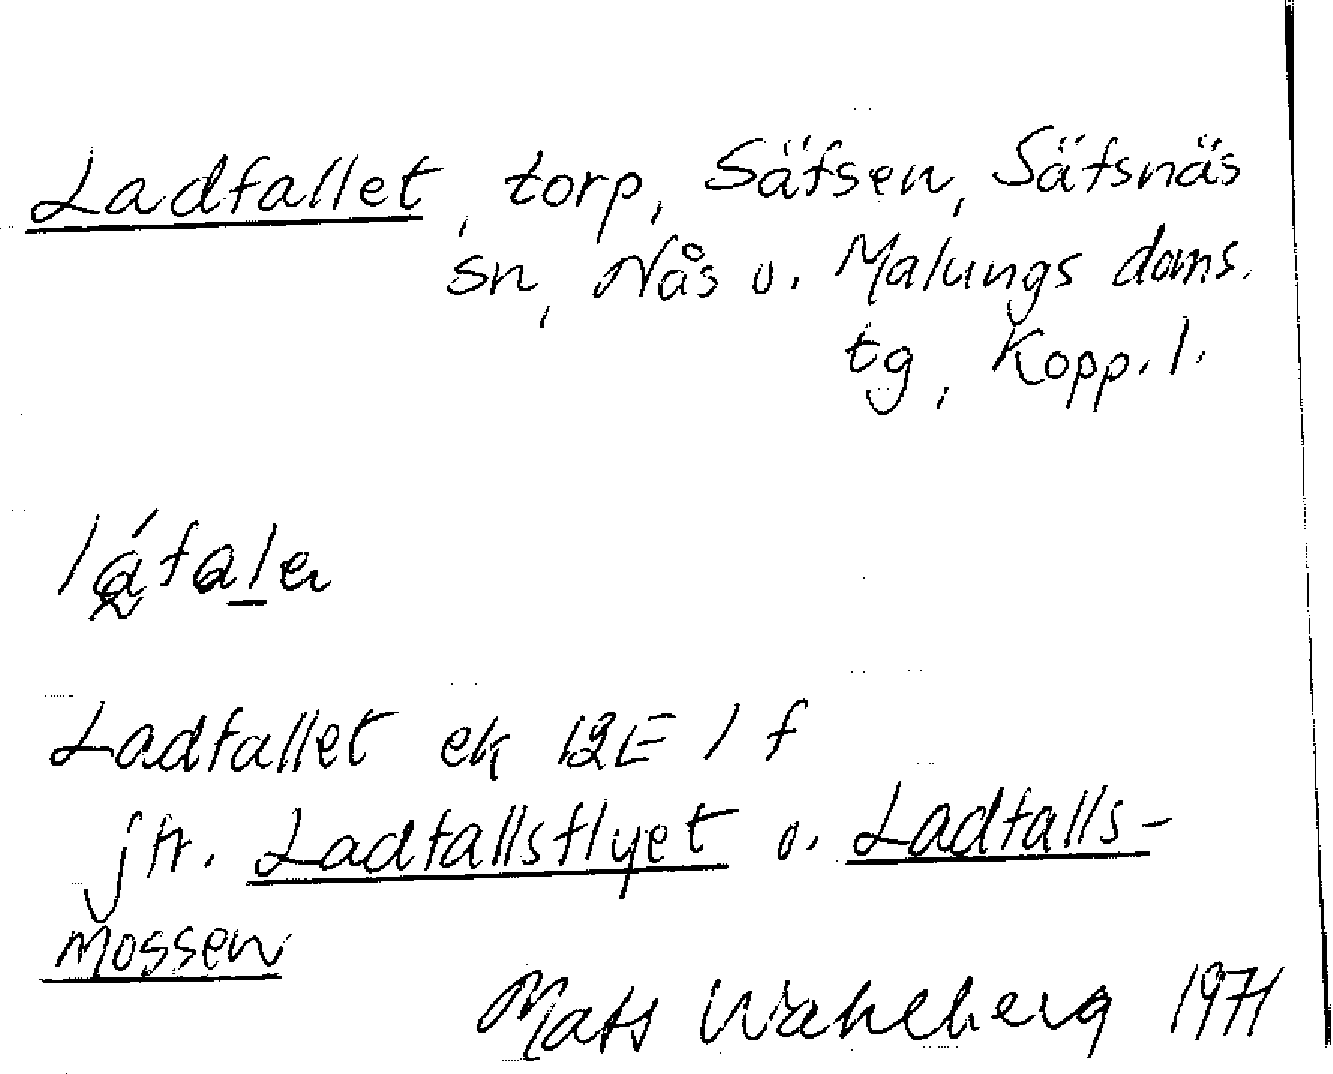 Ladfallet, torp, Säfsen, Säfsnäs
sn, Nås o. Malungs doms.
tg, Kopp. l.
Ladfallet ek 12E 1 f
jfr. Ladfallsflyet o. Ladfalls-
mossen
Mats Wahlberg 1971